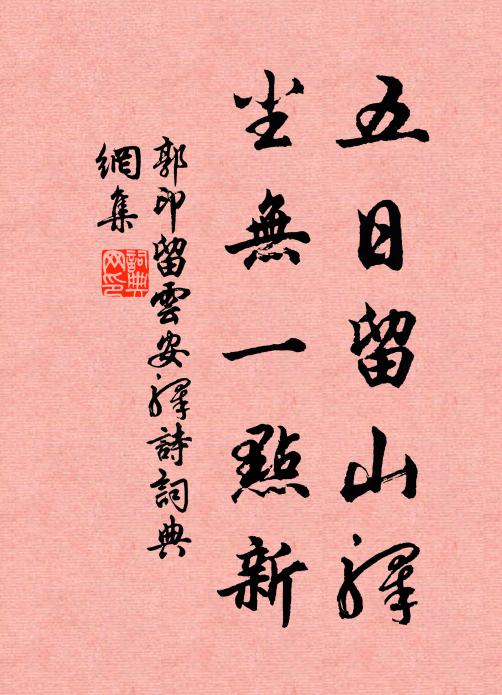 五日留山驛
坐無一點新
郭印留雲安驛詩詞典
網集
詞典
网印